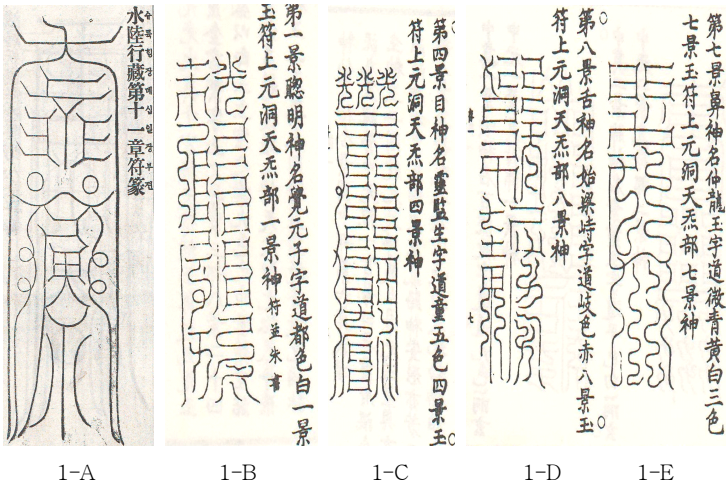 水陸行藏第十一章符篆
第一景聰明神名覺元子字道都色白一景
玉符上元洞天炁部一景神符並朱書
第四景目神名靈監生字道童五色四景玉
符上元洞天炁部四景神
第八景舌神名始梁峙字道岐色赤八景玉
符上元洞天炁部八景神
第七景鼻神名仲龍王字道微青黄白三色
七景玉符上元洞天炁部七景神
1-A
1-B
1-C
1-D
1-E